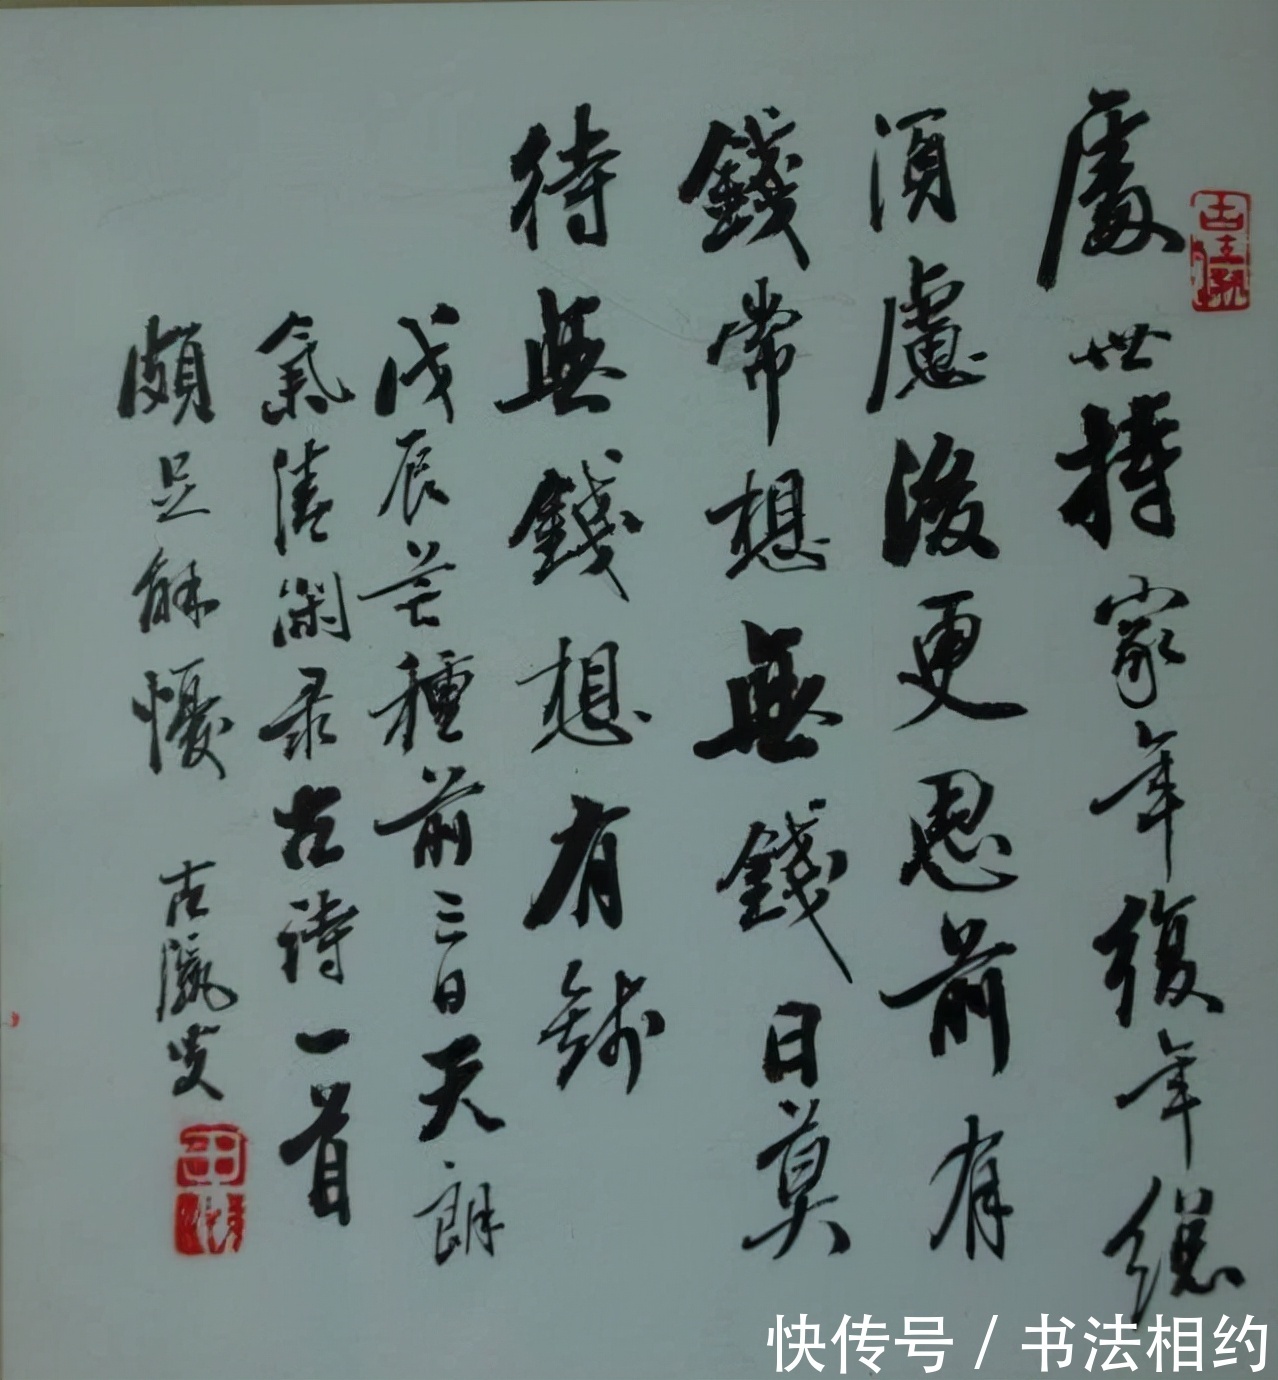 處世持家年復年總
須慮後更思前有
錢常想無錢日莫
待無錢想有錢
戊辰芒種前三日天朗
氣清閑录古诗一首
頗足龢懮
古瀛叟
快传号/书法相约